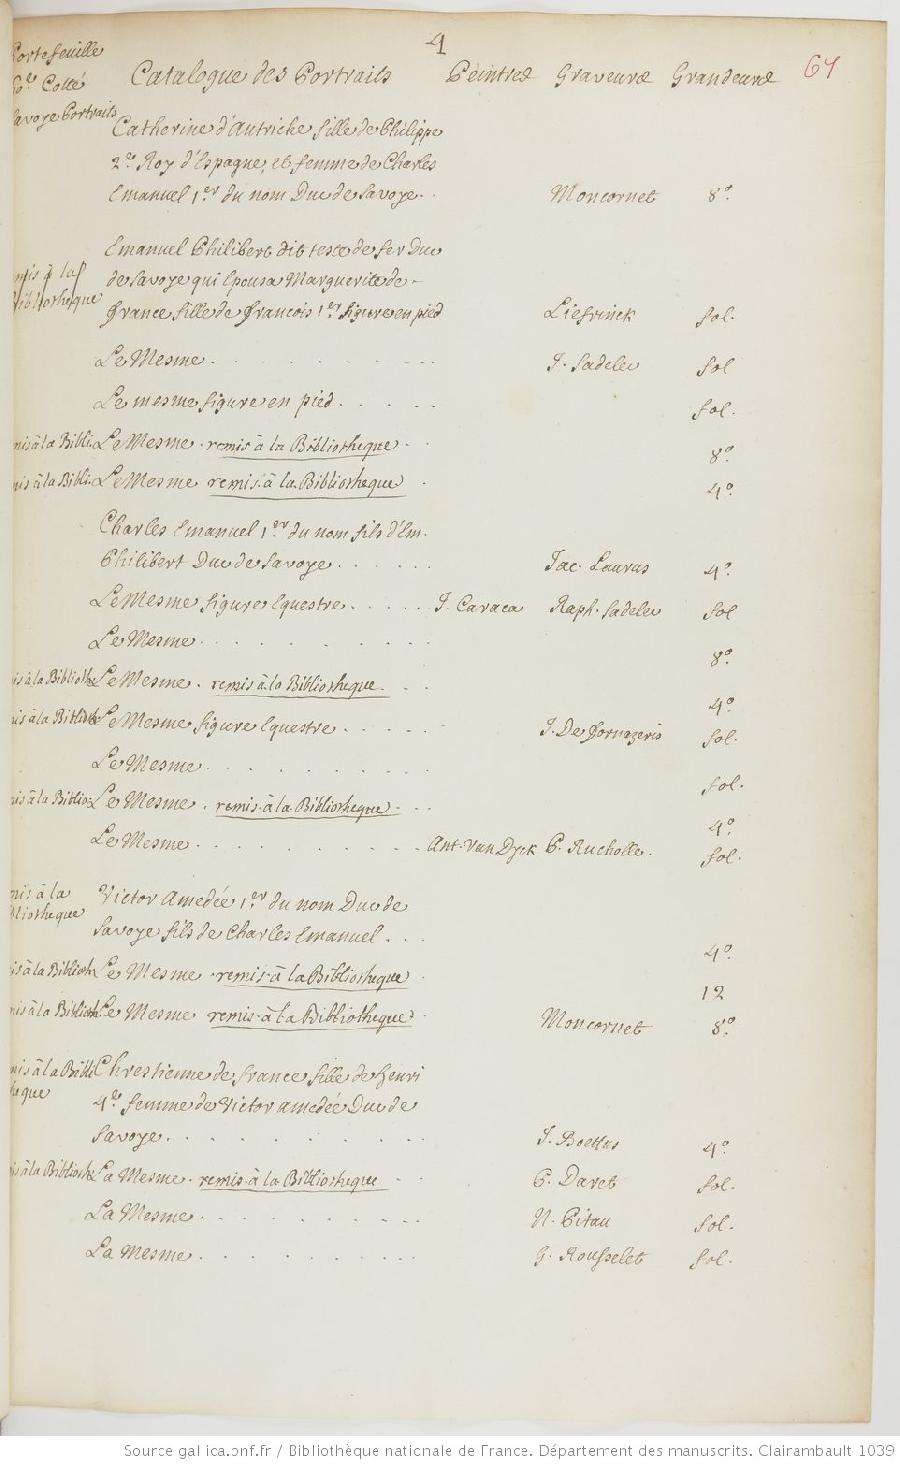 4
67
Portefeuille
Catalogue des Portraits Peintres Graveurs Grandeurs
Cotté
Savoye Portraits
Catherine d'Autriche fille de Philippe
2e Roy d'Espagne, et femme de Charles
Emanuel 1er du nom Duc de Savoye. Moncornet 8o
Emanuel Philibert dit teste de fer Duc
de Savoye qui Epousa Marguerite de
mis à la
Bibliotheque
France fille de francois 1er figure en pied Liefrinck fol.
Le Mesme . . . . . J. Sadeler fol
Le mesme figure en pied . . . . . fol.
mis à la Bibli. Le Mesme . remis à la Bibliotheque . . 8o
mis à la Bibli. Le Mesme remis à la Bibliotheque . 4o
Charles Emanuel 1er du nom fils d'Em.
Philibert Duc de Savoye . . . . . . Jac. Laurus 4o
Le Mesme figure Equestre . . . . . J. Caraca Raph. Sadeler fol
Le Mesme . . . . . . . 8o
is à la Biblioth Le Mesme . remis à la Bibliotheque . . . 4o
Le Mesme figure Equestre . . . . . J. De fornazeris fol.
Le Mesme . . . . . . . fol.
is à la Biblio Le Mesme . remis à la Bibliotheque . . . 4o
Le Mesme . . . . . . . . . Ant. Van Dyck P. Rucholle . fol.
mis à la
bliotheque
Victor Amedée 1er du nom Duc de
Savoye fils de Charles Emanuel . . . 4o
is à la Biblioth Le Mesme . remis à la Bibliotheque . 12
Le Mesme remis à la Bibliotheque . Moncornet 8o
mis à la Bibli Chrestienne de france fille de henri
eque
4e femme de Victor amedée Duc de
Savoye . . . . . . . . J. Boettus 4o
is à la Biblioth La Mesme . remis à la Bibliotheque . . P. Daret fol.
La Mesme . . . . . . . N. Pitau fol.
La Mesme . . . . . . . G. Rousselet fol.
Source gallica.bnf.fr / Bibliothèque nationale de France. Département des manuscrits. Clairambault 1039